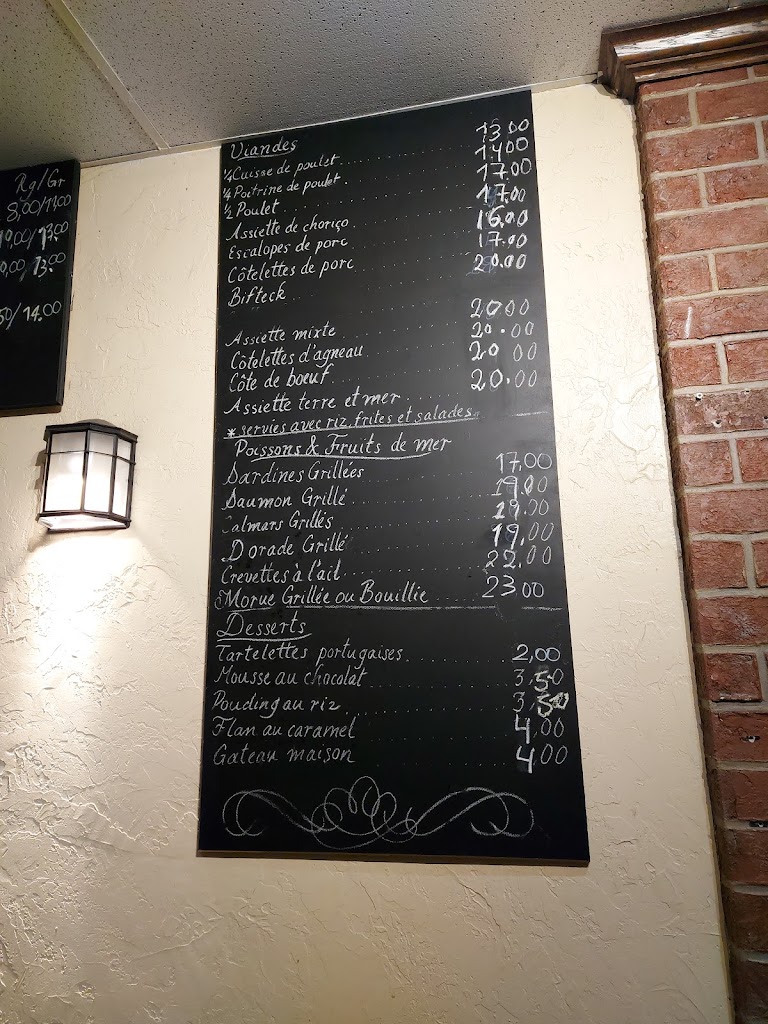 Rg/Gr
8,00/11.00
/13.00
/13.00
/14.00
Viandes
¼ Cuisse de poulet 13.00
¼ Poitrine de poulet 14.00
½ Poulet 17.00
Assiette de choriço 17.00
Escalopes de porc 16.00
Côtelettes de porc 17.00
Bifteck 20.00
Assiette mixte 20.00
Côtelettes d'agneau 20.00
Côte de boeuf 20 00
Assiette terre et mer 20.00
* servies avec riz, frites et salades
Poissons & Fruits de mer
Sardines Grillées 17,00
Saumon Grillé 19.00
Calmars Grillés 19.00
Dorade Grillé 19,00
Crevettes à l'ail 22,00
Morue Grillée ou Bouillie 23 00
Desserts
Tartelettes portugaises 2,00
Mousse au chocolat 3.50
Pouding au riz 3,50
Flan au caramel 4,00
Gateau maison 4,00